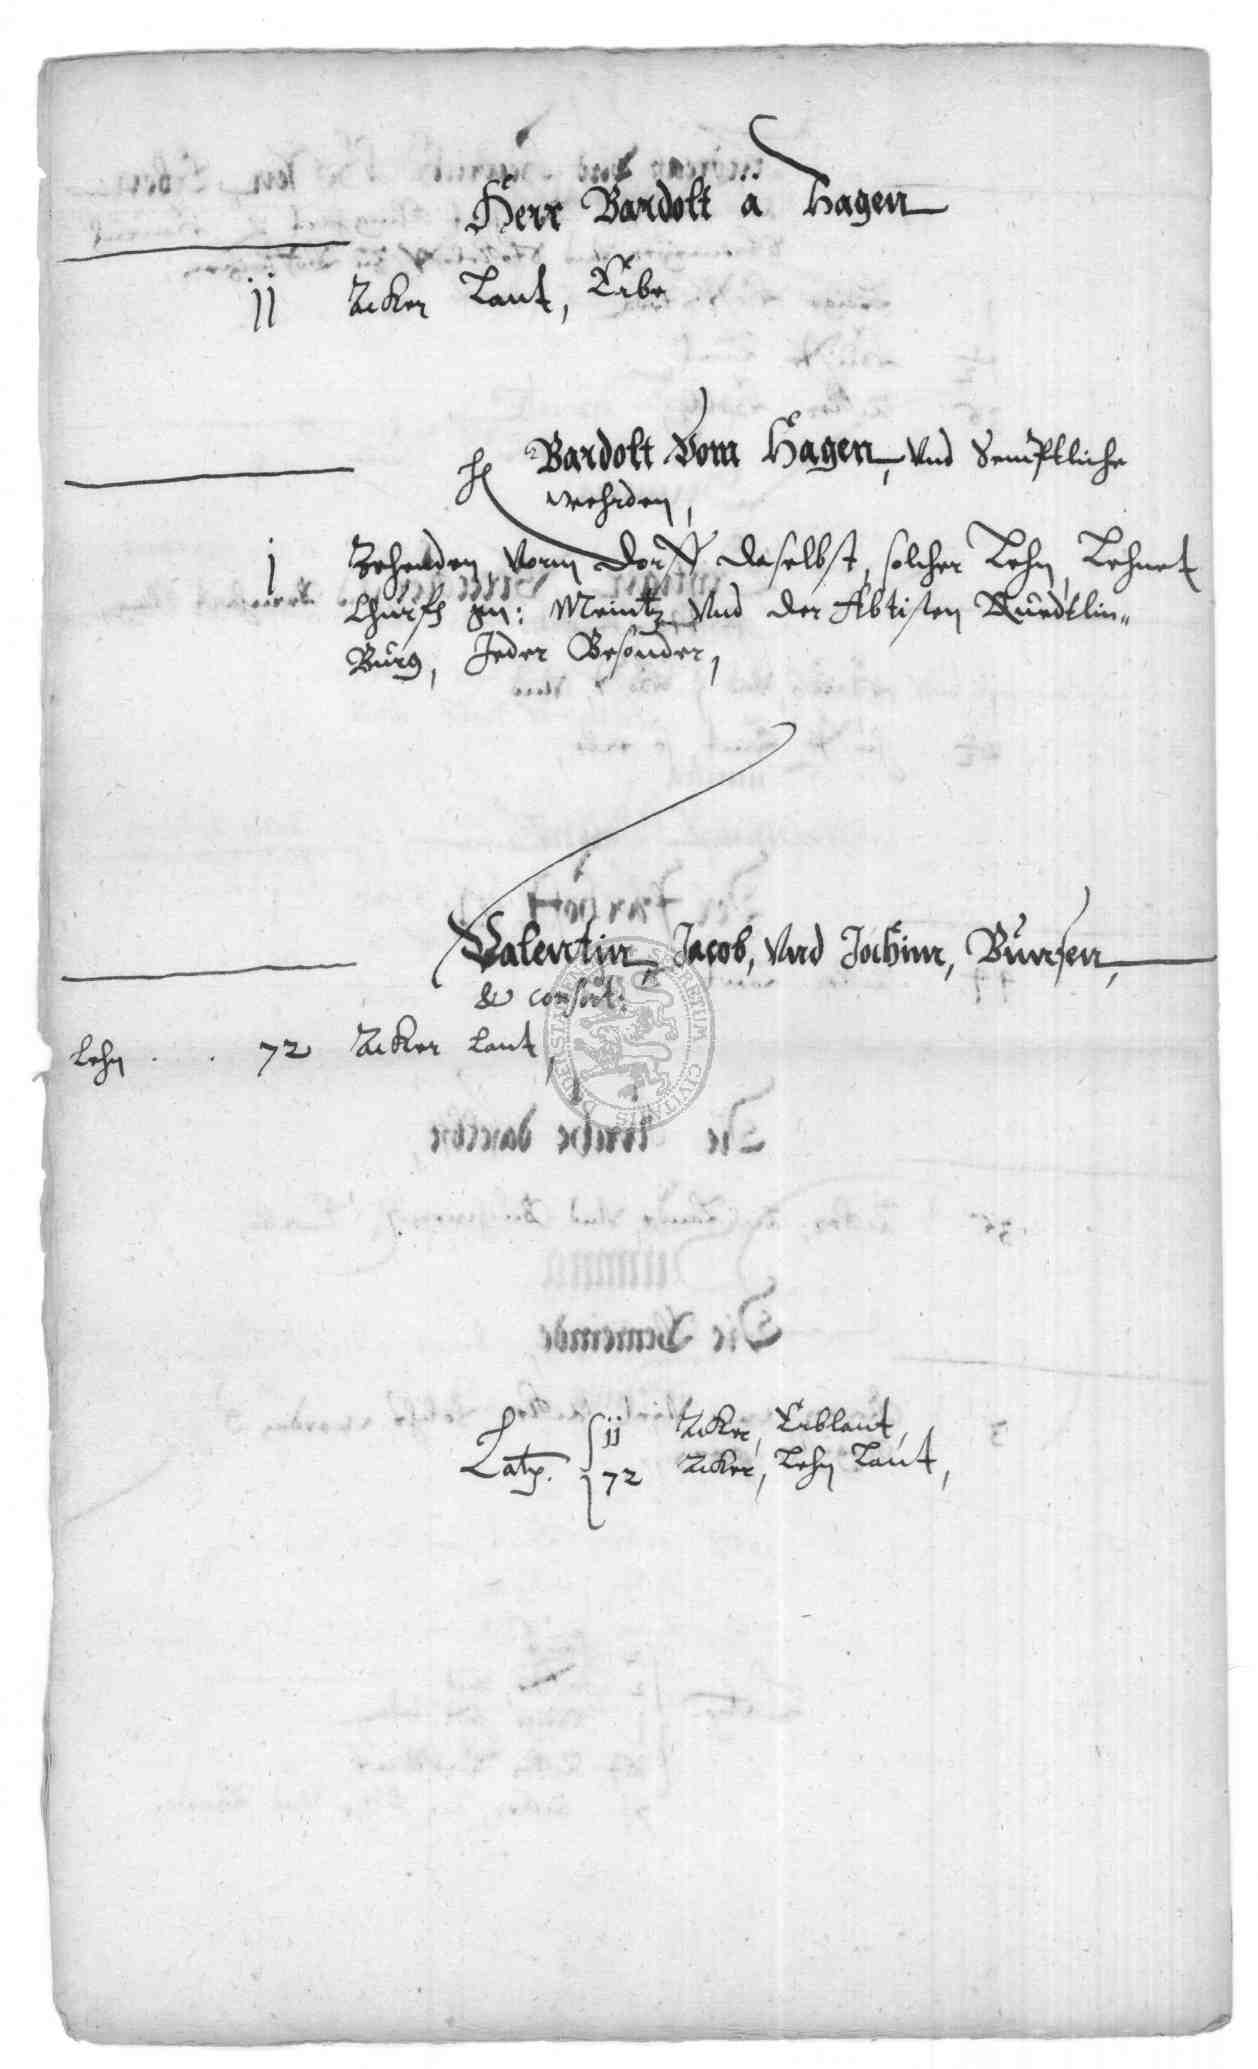 Herr Bardolt à Hagen
jj Acker Lant, Erbe
H Bardolt Vom Hagen, Vnd Semptliche
wehrden,
j Zehenden, Vorm Dorff daselbst, solcher Lehn, Lehnet
Churfs gn: Meintz Vnd der Abtissen Quedtlin=
Burg, Jeder Besonder,
Valentin, Jacob, Vnd Jochim, Bunsen,
& consort:
Lehn . . 72 Acker Lant,
Lat9. jj Acker, Erblant,
72 Acker, Lehn Lant,